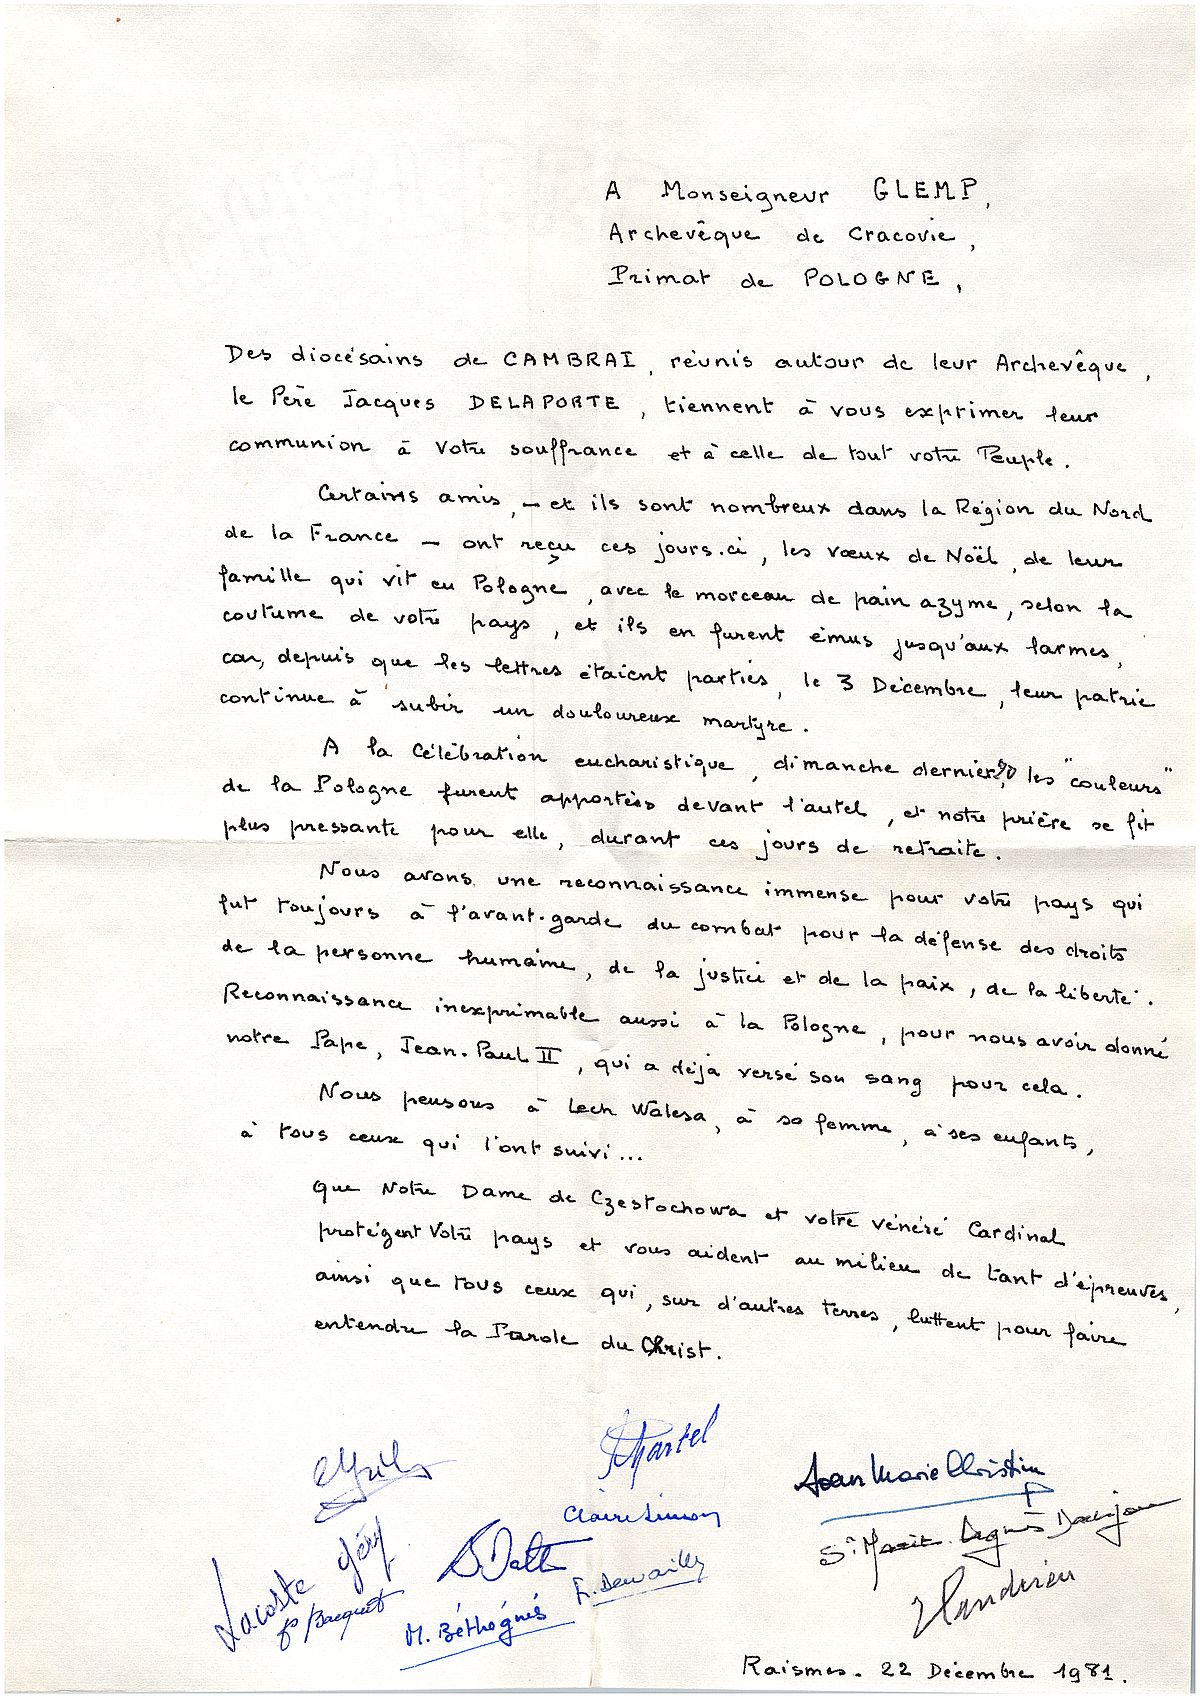 A Monseigneur GLEMP,
Archevêque de Cracovie,
Primat de POLOGNE,
Des diocésains de CAMBRAI, réunis autour de leur Archevêque,
le Père Jacques DELAPORTE, tiennent à vous exprimer leur
communion à votre souffrance et à celle de tout votre Peuple.
Certains amis, - et ils sont nombreux dans la Région du Nord
de la France - ont reçu ces jours-ci, les vœux de Noël, de leur
famille qui vit en Pologne, avec le morceau de pain azyme, selon la
coutume de votre pays, et ils en furent émus jusqu'aux larmes,
car, depuis que les lettres étaient parties, le 3 Décembre, leur patrie
continue à subir un douloureux martyre.
A la Célébration eucharistique, dimanche dernier, les "couleurs"
de la Pologne furent apportées devant l'autel, et notre prière se fit
plus pressante pour elle, durant ces jours de retraite.
Nous avons une reconnaissance immense pour votre pays qui
fut toujours à l'avant-garde du combat pour la défense des droits
de la personne humaine, de la justice et de la paix, de la liberté.
Reconnaissance inexprimable aussi à la Pologne, pour nous avoir donné
notre Pape, Jean-Paul II, qui a déjà versé son sang pour cela.
Nous pensons à Lech Walesa, à sa femme, à ses enfants,
à tous ceux qui l'ont suivi...
Que Notre Dame de Częstochowa et votre vénéré Cardinal
protègent Votre pays et vous aident au milieu de tant d'épreuves,
ainsi que tous ceux qui, sur d'autres terres, luttent pour faire
entendre la Parole du Christ.
Martel
Jean Marie Christin
Claire Simon
Sr Marie-Agnès
Géry
Lacoste
Bacquet
E. Dewailly
M. Béthegnies
Raismes. 22 Décembre 1981.